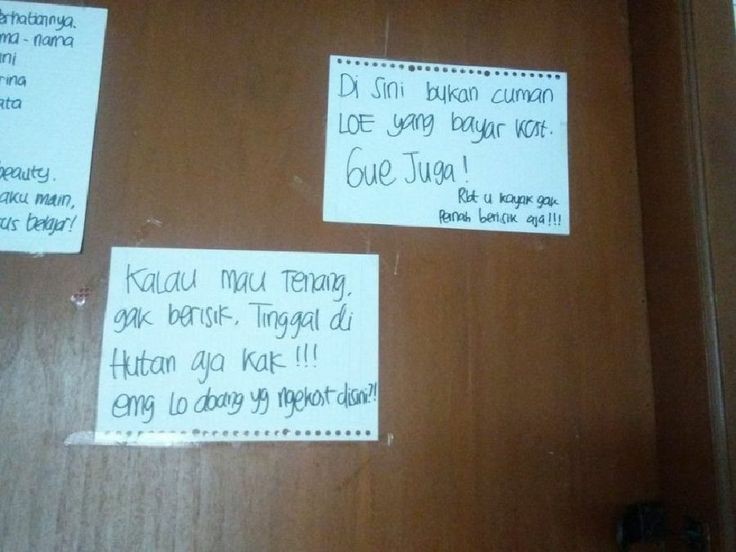 erhatiannya.
ma-nama
ini
rina
ata
beauty.
aku main,
us belajar!
Di sini bukan cuman
LOE yang bayar kost.
Gue Juga!
Rbt u kayak gak
Pernah berisik aja!!!
KALAU MAU TENANG,
gak berisik. Tinggal di
Hutan aja kak!!!
emg Lo abang yg ngekost disini?!